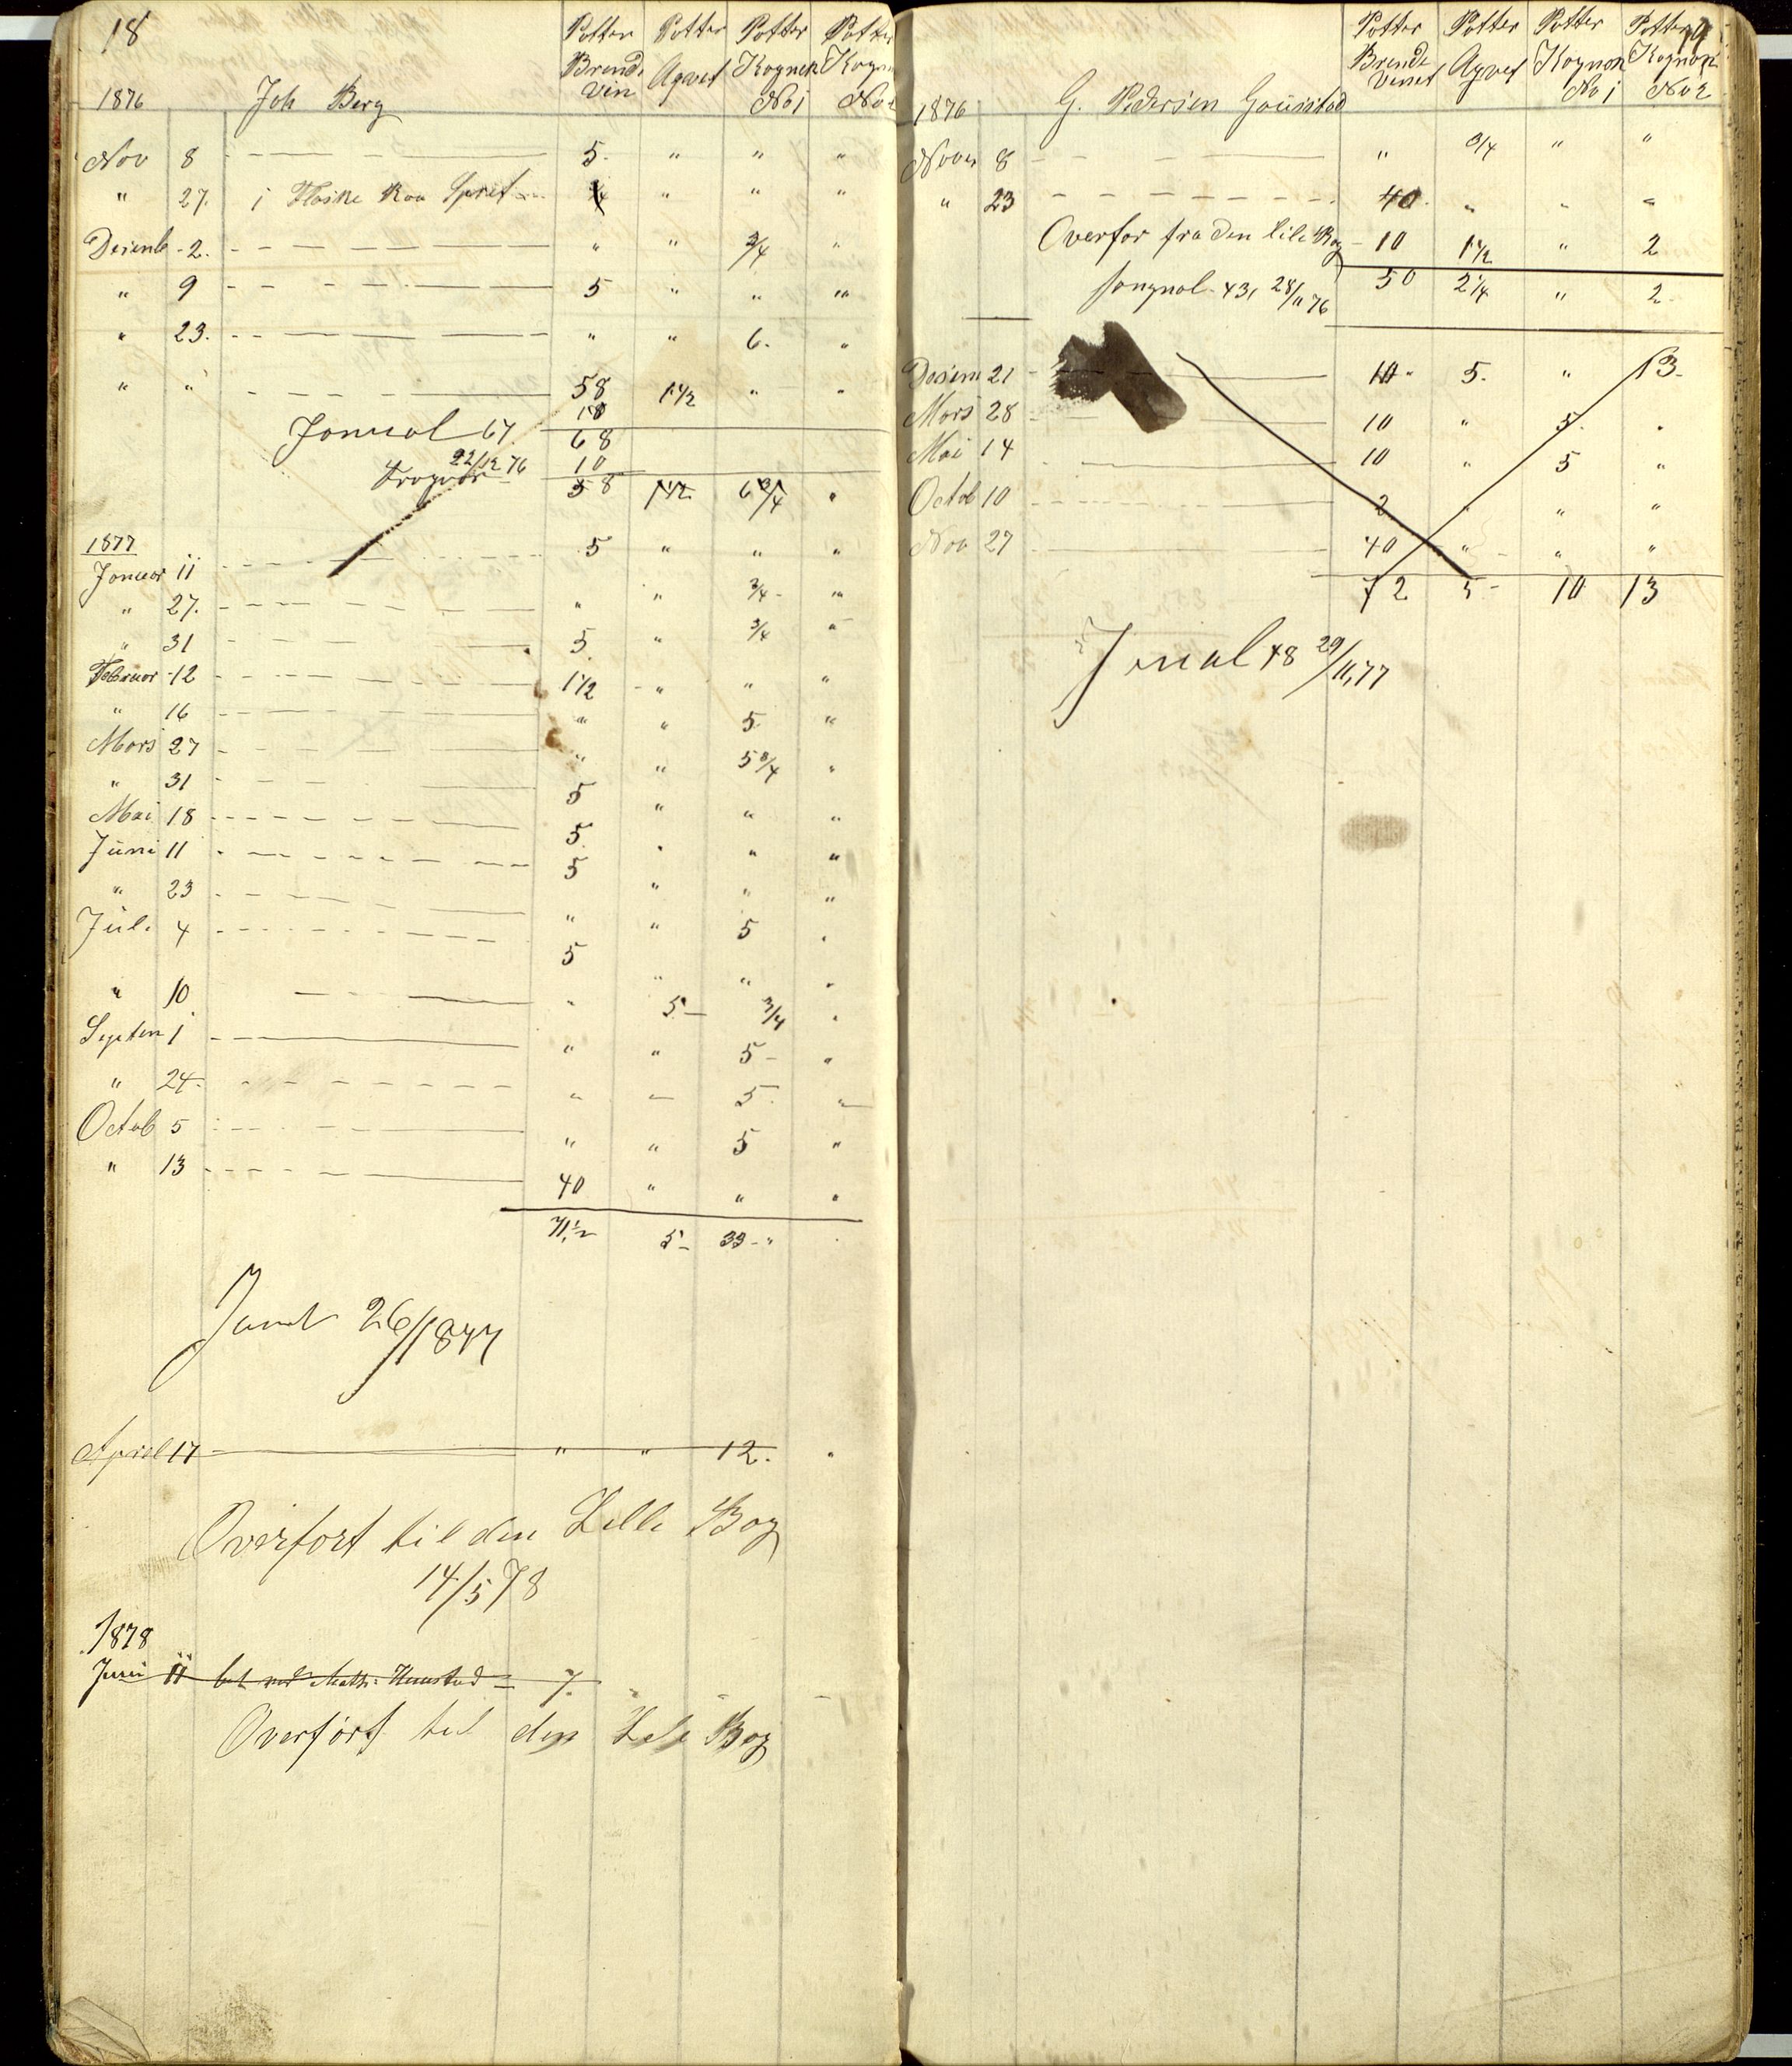 18
Potter Potter Potter Potter
Brende Agvet Kognek Kogn
vin No 1 No 2
1876 Joh Berg
Nov 8 5. " " "
" 27. 1 Flaske Raa Spret " " "
Desemb 2. " " 3/4 "
" 9 5 " " "
" 23. " " 6. "
" " 58 1 1/2 " "
10
Jonual 67 68
22/12 76 10
58 1 1/2 6 3/4 "
1877
Jonuor 11 5 " " "
" 27. " " 3/4 "
" 31 5 " 3/4 "
Februor 12 1 1/2 " " "
" 16 " " 5. "
Mars 27 " " 5 3/4 "
" 31 5 " " "
Mai 18 5. " " "
Juni 11 5 " " "
" 23 " " 5 "
Juli 4 5 " " "
" 10 " 5 3/4 "
Septem 1 " " 5 "
" 24. " " 5. "
Octob 5 " " 5 "
" 13 40 " " "
71 1/2 5 33 "
26/1877
Aprel 17 " " 12. "
Overfort til den Lille Bog
14/5 78
1878
Juni 11 7.
Overført til den Lele Bog
19
Potter Potter Potter Potter
Brende Agvet Kognak Kognak
vinet No 1 No 2
1876 G. Pedersen Gaüsstad
Novem 8 " 3/4 " "
" 23 40 " " "
Overfor fra den lile Bog 10 1 1/2 " 2
50 2 1/4 " 2
Jongnal 431 28/11 76
Desem 21 10 5. " 13
Mars 28 10 " 5. "
Mai 14 10 " 5 "
Octob 10 2 " " "
Nov 27 40 " " "
72 5 10 13
Jonal 48 29/11, 77